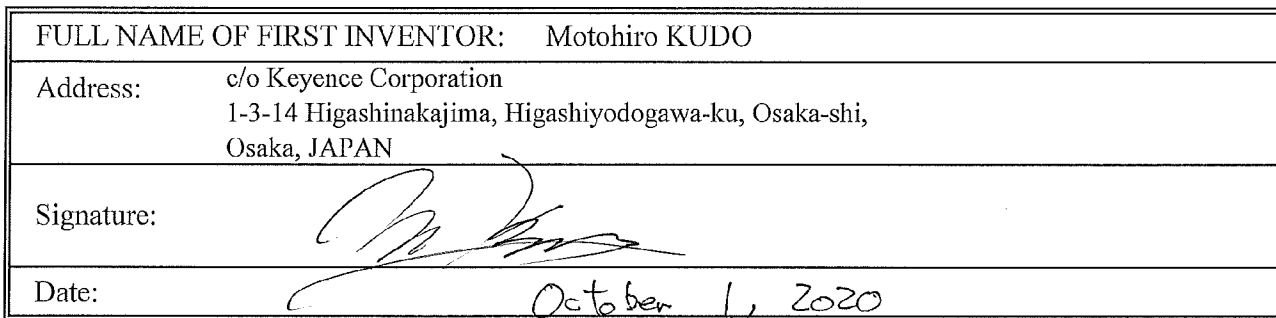 FULL NAME OF FIRST INVENTOR: Motohiro KUDO
Address: c/o Keyence Corporation
1-3-14 Higashinakajima, Higashiyodogawa-ku, Osaka-shi,
Osaka, JAPAN
Signature:
Date: October 1, 2020